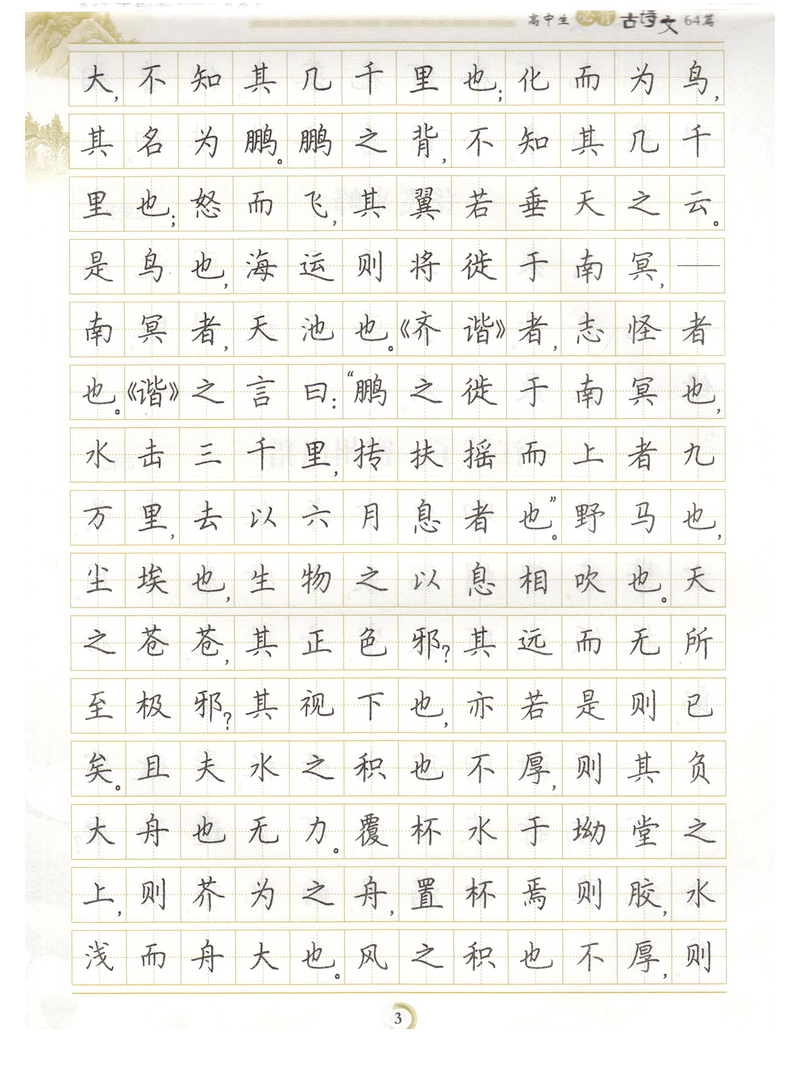 高中生 必背 古诗文 64篇
大,不知其几千里也;化而为鸟,
其名为鹏。鹏之背,不知其几千
里也;怒而飞,其翼若垂天之云。
是鸟也,海运则将徙于南冥,—
南冥者,天池也。《齐谐》者,志怪者
也。《谐》之言曰:“鹏之徙于南冥也,
水击三千里,抟扶摇而上者九
万里,去以六月息者也。”野马也,
尘埃也,生物之以息相吹也。天
之苍苍,其正色邪?其远而无所
至极邪?其视下也,亦若是则已
矣。且夫水之积也不厚,则其负
大舟也无力。覆杯水于坳堂之
上,则芥为之舟,置杯焉则胶,水
浅而舟大也。风之积也不厚,则
3